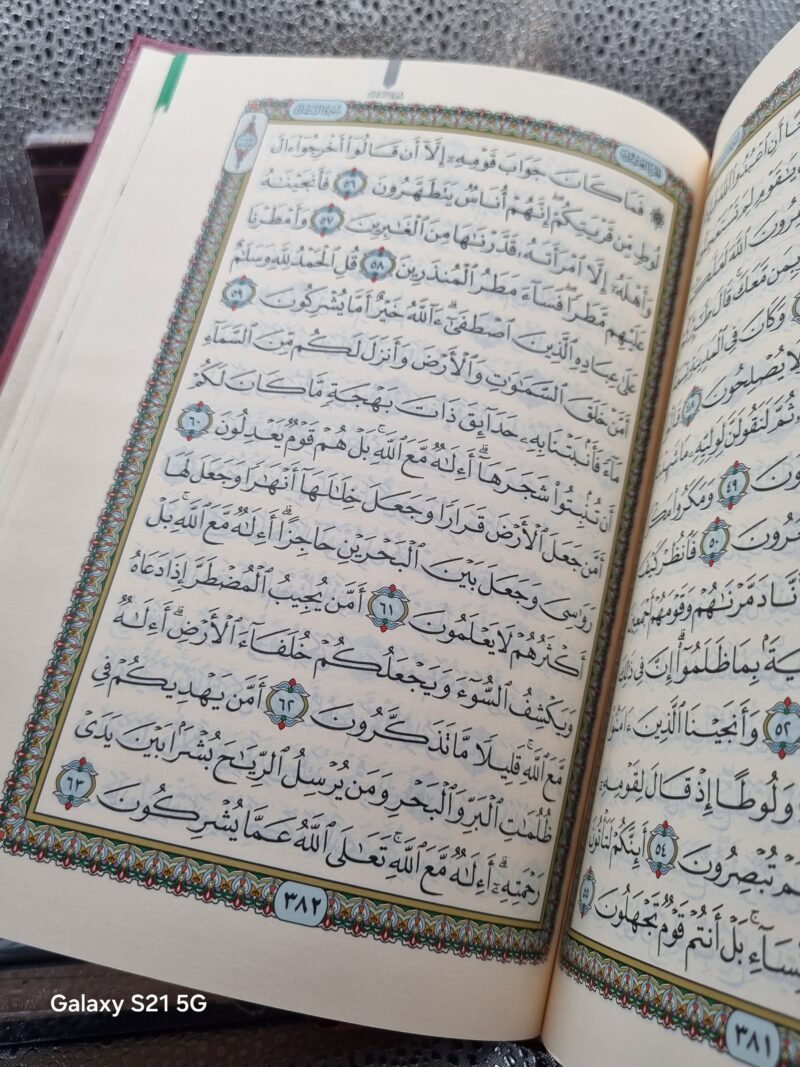 سُورَةُ النَّمْلِ
۞ فَمَا كَانَ جَوَابَ قَوْمِهِۦٓ إِلَّآ أَن قَالُوٓا۟ أَخْرِجُوٓا۟ ءَالَ
لُوطٍ مِّن قَرْيَتِكُمْ ۖ إِنَّهُمْ أُنَاسٌ يَتَطَهَّرُونَ ٥٦ فَأَنجَيْنَٰهُ
وَأَهْلَهُۥٓ إِلَّا ٱمْرَأَتَهُۥ قَدَّرْنَٰهَا مِنَ ٱلْغَٰبِرِينَ ٥٧ وَأَمْطَرْنَا
عَلَيْهِم مَّطَرًا ۖ فَسَآءَ مَطَرُ ٱلْمُنذَرِينَ ٥٨ قُلِ ٱلْحَمْدُ لِلَّهِ وَسَلَٰمٌ
عَلَىٰ عِبَادِهِ ٱلَّذِينَ ٱصْطَفَىٰٓ ۗ ءَآللَّهُ خَيْرٌ أَمَّا يُشْرِكُونَ ٥٩
أَمَّنْ خَلَقَ ٱلسَّمَٰوَٰتِ وَٱلْأَرْضَ وَأَنزَلَ لَكُم مِّنَ ٱلسَّمَآءِ
مَآءً فَأَنۢبَتْنَا بِهِۦ حَدَآئِقَ ذَاتَ بَهْجَةٍ مَّا كَانَ لَكُمْ
أَن تُنۢبِتُوا۟ شَجَرَهَآ ۗ أَءِلَٰهٌ مَّعَ ٱللَّهِ ۚ بَلْ هُمْ قَوْمٌ يَعْدِلُونَ ٦٠
أَمَّن جَعَلَ ٱلْأَرْضَ قَرَارًا وَجَعَلَ خِلَٰلَهَآ أَنْهَٰرًا وَجَعَلَ لَهَا
رَوَٰسِىَ وَجَعَلَ بَيْنَ ٱلْبَحْرَيْنِ حَاجِزًا ۗ أَءِلَٰهٌ مَّعَ ٱللَّهِ ۚ بَلْ
أَكْثَرُهُمْ لَا يَعْلَمُونَ ٦١ أَمَّن يُجِيبُ ٱلْمُضْطَرَّ إِذَا دَعَاهُ
وَيَكْشِفُ ٱلسُّوٓءَ وَيَجْعَلُكُمْ خُلَفَآءَ ٱلْأَرْضِ ۗ أَءِلَٰهٌ
مَّعَ ٱللَّهِ ۚ قَلِيلًا مَّا تَذَكَّرُونَ ٦٢ أَمَّن يَهْدِيكُمْ فِى
ظُلُمَٰتِ ٱلْبَرِّ وَٱلْبَحْرِ وَمَن يُرْسِلُ ٱلرِّيَٰحَ بُشْرًۢا بَيْنَ يَدَىْ
رَحْمَتِهِۦٓ ۗ أَءِلَٰهٌ مَّعَ ٱللَّهِ ۚ تَعَٰلَى ٱللَّهُ عَمَّا يُشْرِكُونَ ٦٣
٣٨٢
أَنِ ٱعْبُدُوا۟ ٱللَّهَ
يَٰقَوْمِ لِمَ
ٱللَّهَ لَعَلَّكُمْ
وَبِمَن مَّعَكَ ۚ قَالَ
وَكَانَ فِى ٱلْمَدِينَةِ
لَا يُصْلِحُونَ ٤٨
ثُمَّ لَنَقُولَنَّ لِوَلِيِّهِۦ مَا
٤٩ وَمَكَرُوا۟
٥٠ فَٱنظُرْ كَيْفَ
أَنَّا دَمَّرْنَٰهُمْ وَقَوْمَهُمْ أَجْمَعِينَ
بِمَا ظَلَمُوٓا۟ ۗ إِنَّ فِى ذَٰلِكَ
٥٢ وَأَنجَيْنَا ٱلَّذِينَ ءَامَنُوا۟
وَلُوطًا إِذْ قَالَ لِقَوْمِهِۦٓ
تُبْصِرُونَ ٥٤ أَئِنَّكُمْ لَتَأْتُونَ
بَلْ أَنتُمْ قَوْمٌ تَجْهَلُونَ ٥٥
٣٨١
Galaxy S21 5G